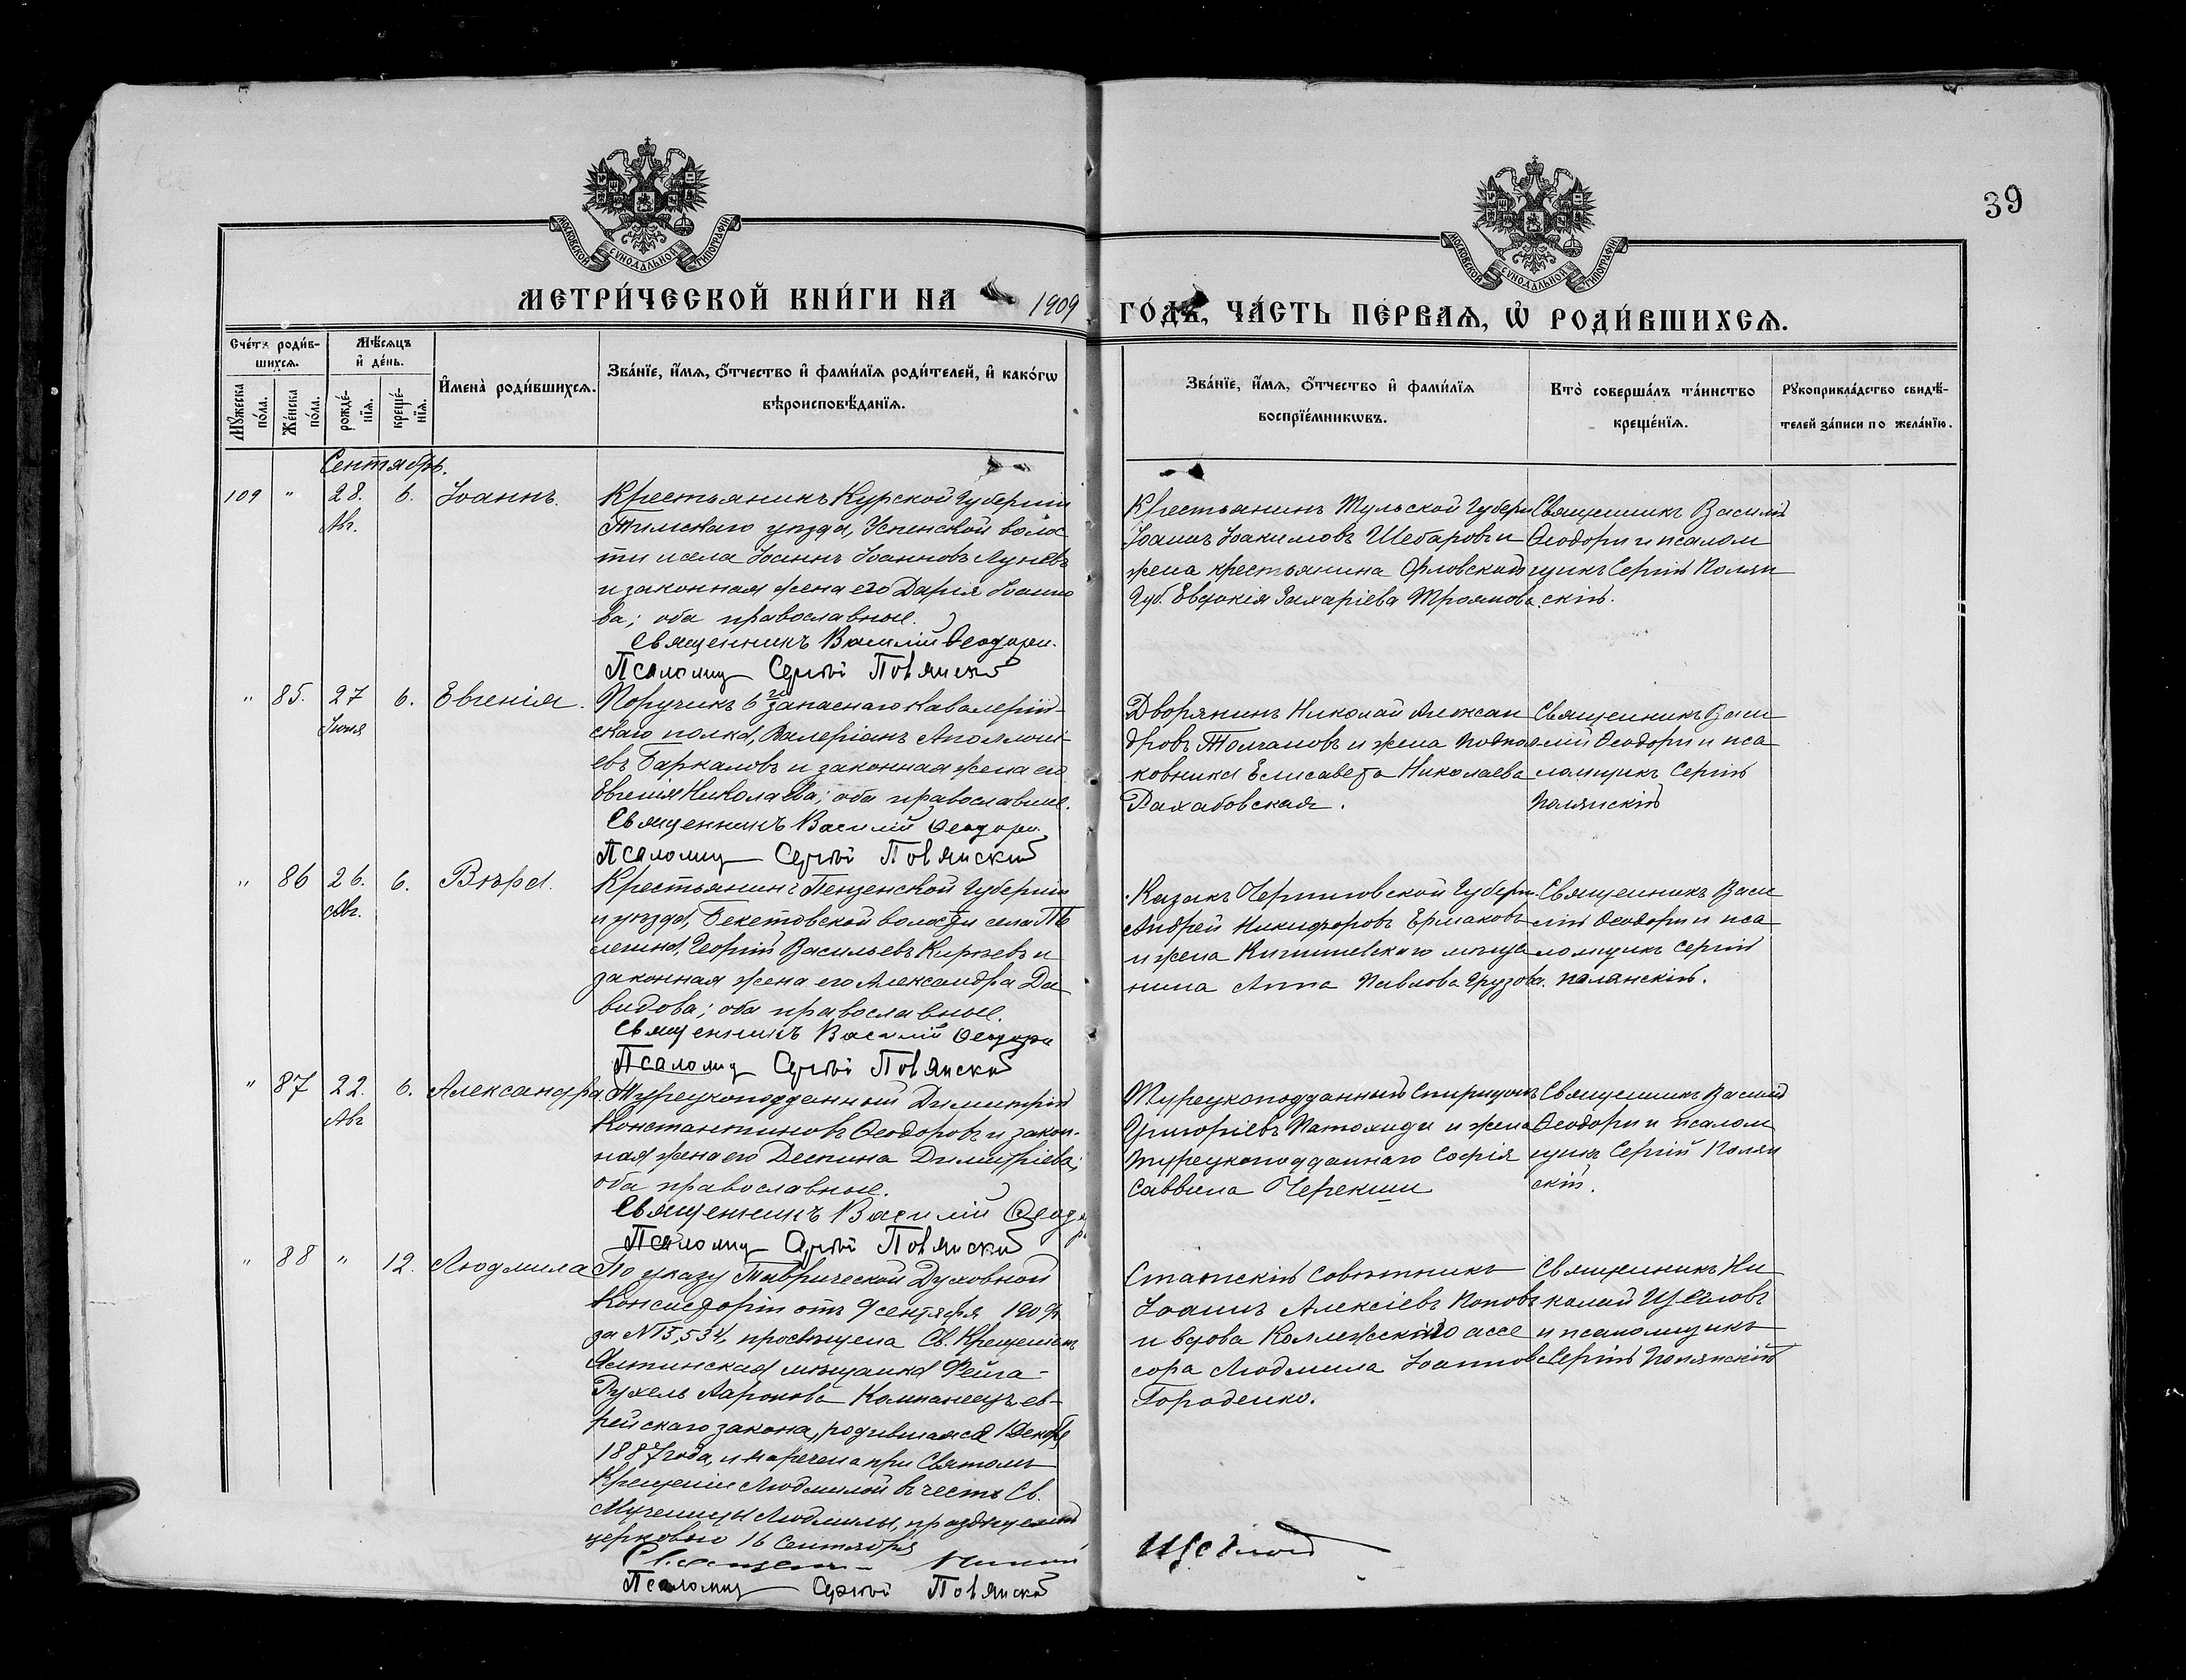 39
МОСКОВСКОЙ СѴНОДАЛЬНОЙ ТИПОГРАФІИ
МОСКОВСКОЙ СѴНОДАЛЬНОЙ ТИПОГРАФІИ
МЕТРИ́ЧЕСКОЙ КНИ́ГИ НА 1909 ГО́ДЪ, ЧА́СТЬ ПЕ́РВАЯ, Ѡ҆ РОДИ́ВШИХСѦ.
Сче́тъ роди́в-
шихсѧ.
Мꙋ́жеска по́ла.
Же́нска по́ла.
Мѣ́сѧцъ
и҆ де́нь.
рожде́-нїѧ.
креще́-нїѧ.
И҆мена̀ роди́вшихсѧ.
Зва́нїе, и҆́мѧ, ѻ҆́тчество и҆ фами́лїѧ роди́телей, и҆ како́гѡ
вѣроисповѣ́данїѧ.
Зва́нїе, и҆́мѧ, ѻ҆́тчество и҆ фами́лїѧ
воспрїе́мникѡвъ.
Кто̀ соверша́лъ та́инство
креще́нїѧ.
Рꙋкоприкла́дство свидѣ́-
телей за́писи по жела́нїю.
Сентябрь.
109 " 28. Авг. 6. Іоаннъ.
Крестьянинъ Курской Губерніи
Тимскаго уѣзда, Успенской волос
ти и села Іоаннъ Іоанновъ Луневъ
и законная жена его Дарія Іоанно
ва; оба православные.
Священникъ Василій Ѳеодори.
Псаломщ Сергій Полянскій
Крестьянинъ Тульской Губерн
Іоаннъ Іоакимовъ Шебаровъ и
жена крестьянина Орловской
Губ. Евдокія Захаріева Троянова
Священникъ Василій
Ѳеодори и псалом
щикъ Сергій Полян
скій.
" 85. 27 Іюня 6. Евгенія.
Поручикъ 6го запаснаго Кавалерій-
скаго полка, Валеріанъ Аполлоні-
евъ Баркаловъ и законная жена его
Евгенія Николаева; оба православные.
Священникъ Василій Ѳеодори.
Псаломщ Сергій Полянскій
Дворянинъ Николай Алексан
дровъ Толчановъ и жена Подпол
ковника Елисавета Николаева
Рахабовская.
Священникъ Васи
лій Ѳеодори и пса
ломщикъ Сергій
Полянскій
" 86 26. Авг. 6. Вѣра.
Крестьянинъ Пензенской Губерніи
и уѣзда, Бекетовской волости села
Георгій Васильевъ Кирѣевъ и
законная жена его Александра Да
видова; оба православные.
Священникъ Василій Ѳеодори
Псаломщ Сергій Полянскій
Казакъ Черниговской Губерн.
Андрей Никифоровъ Ермаковъ
и жена Кишиневскаго мѣща
нина Анна Павлова Грузова.
Священникъ Васи
лій Ѳеодори и пса
ломщикъ Сергій
Полянскій.
" 87 22. Авг 6. Александра.
Турецкоподданный Димитрій
Константиновъ Ѳеодоровъ и закон-
ная жена его Деспина Димитріева;
оба православные.
Священникъ Василій Ѳеодори
Псаломщ Сергій Полянскій
Турецкоподданный Спиридонъ
Григоріевъ и жена
турецкоподданнаго Софія
Саввина
Священникъ Василій
Ѳеодори и псалом
щикъ Сергій Полян
скій.
" 88 " 12. Людмила
По указу Таврической Духовной
Консисторіи отъ 9 сентября 1909 г.
за № 15,534, просвѣщена Св. Крещеніемъ
Ялтинская мѣщанка Фейга-
Рухель Аронова Компанеецъ, ев-
рейскаго закона, родившаяся 1 Декабр
1887 года, и наречена при Святомъ
Крещеніи Людмилой въ честь Св.
Мученицы Людмилы, празднуемой
церковью 16 Сентября
Священникъ Николай Щегловъ
Псаломщ Сергій Полянскій
Статскій Совѣтникъ
Іоаннъ Алексіевъ Поповъ
и вдова Коллежскаго ассе
сора Людмила Іоаннова
Городенко.
Священникъ Ни
колай Щегловъ
и псаломщикъ
Сергій Полянскій